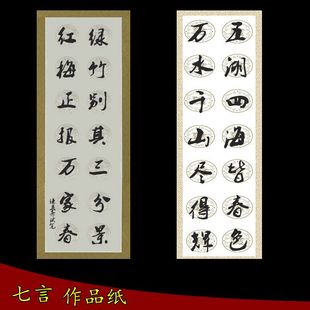 绿竹别其三分景
红梅正报万家春
五湖四海皆春色
万水千山尽得辉
七言 作品纸